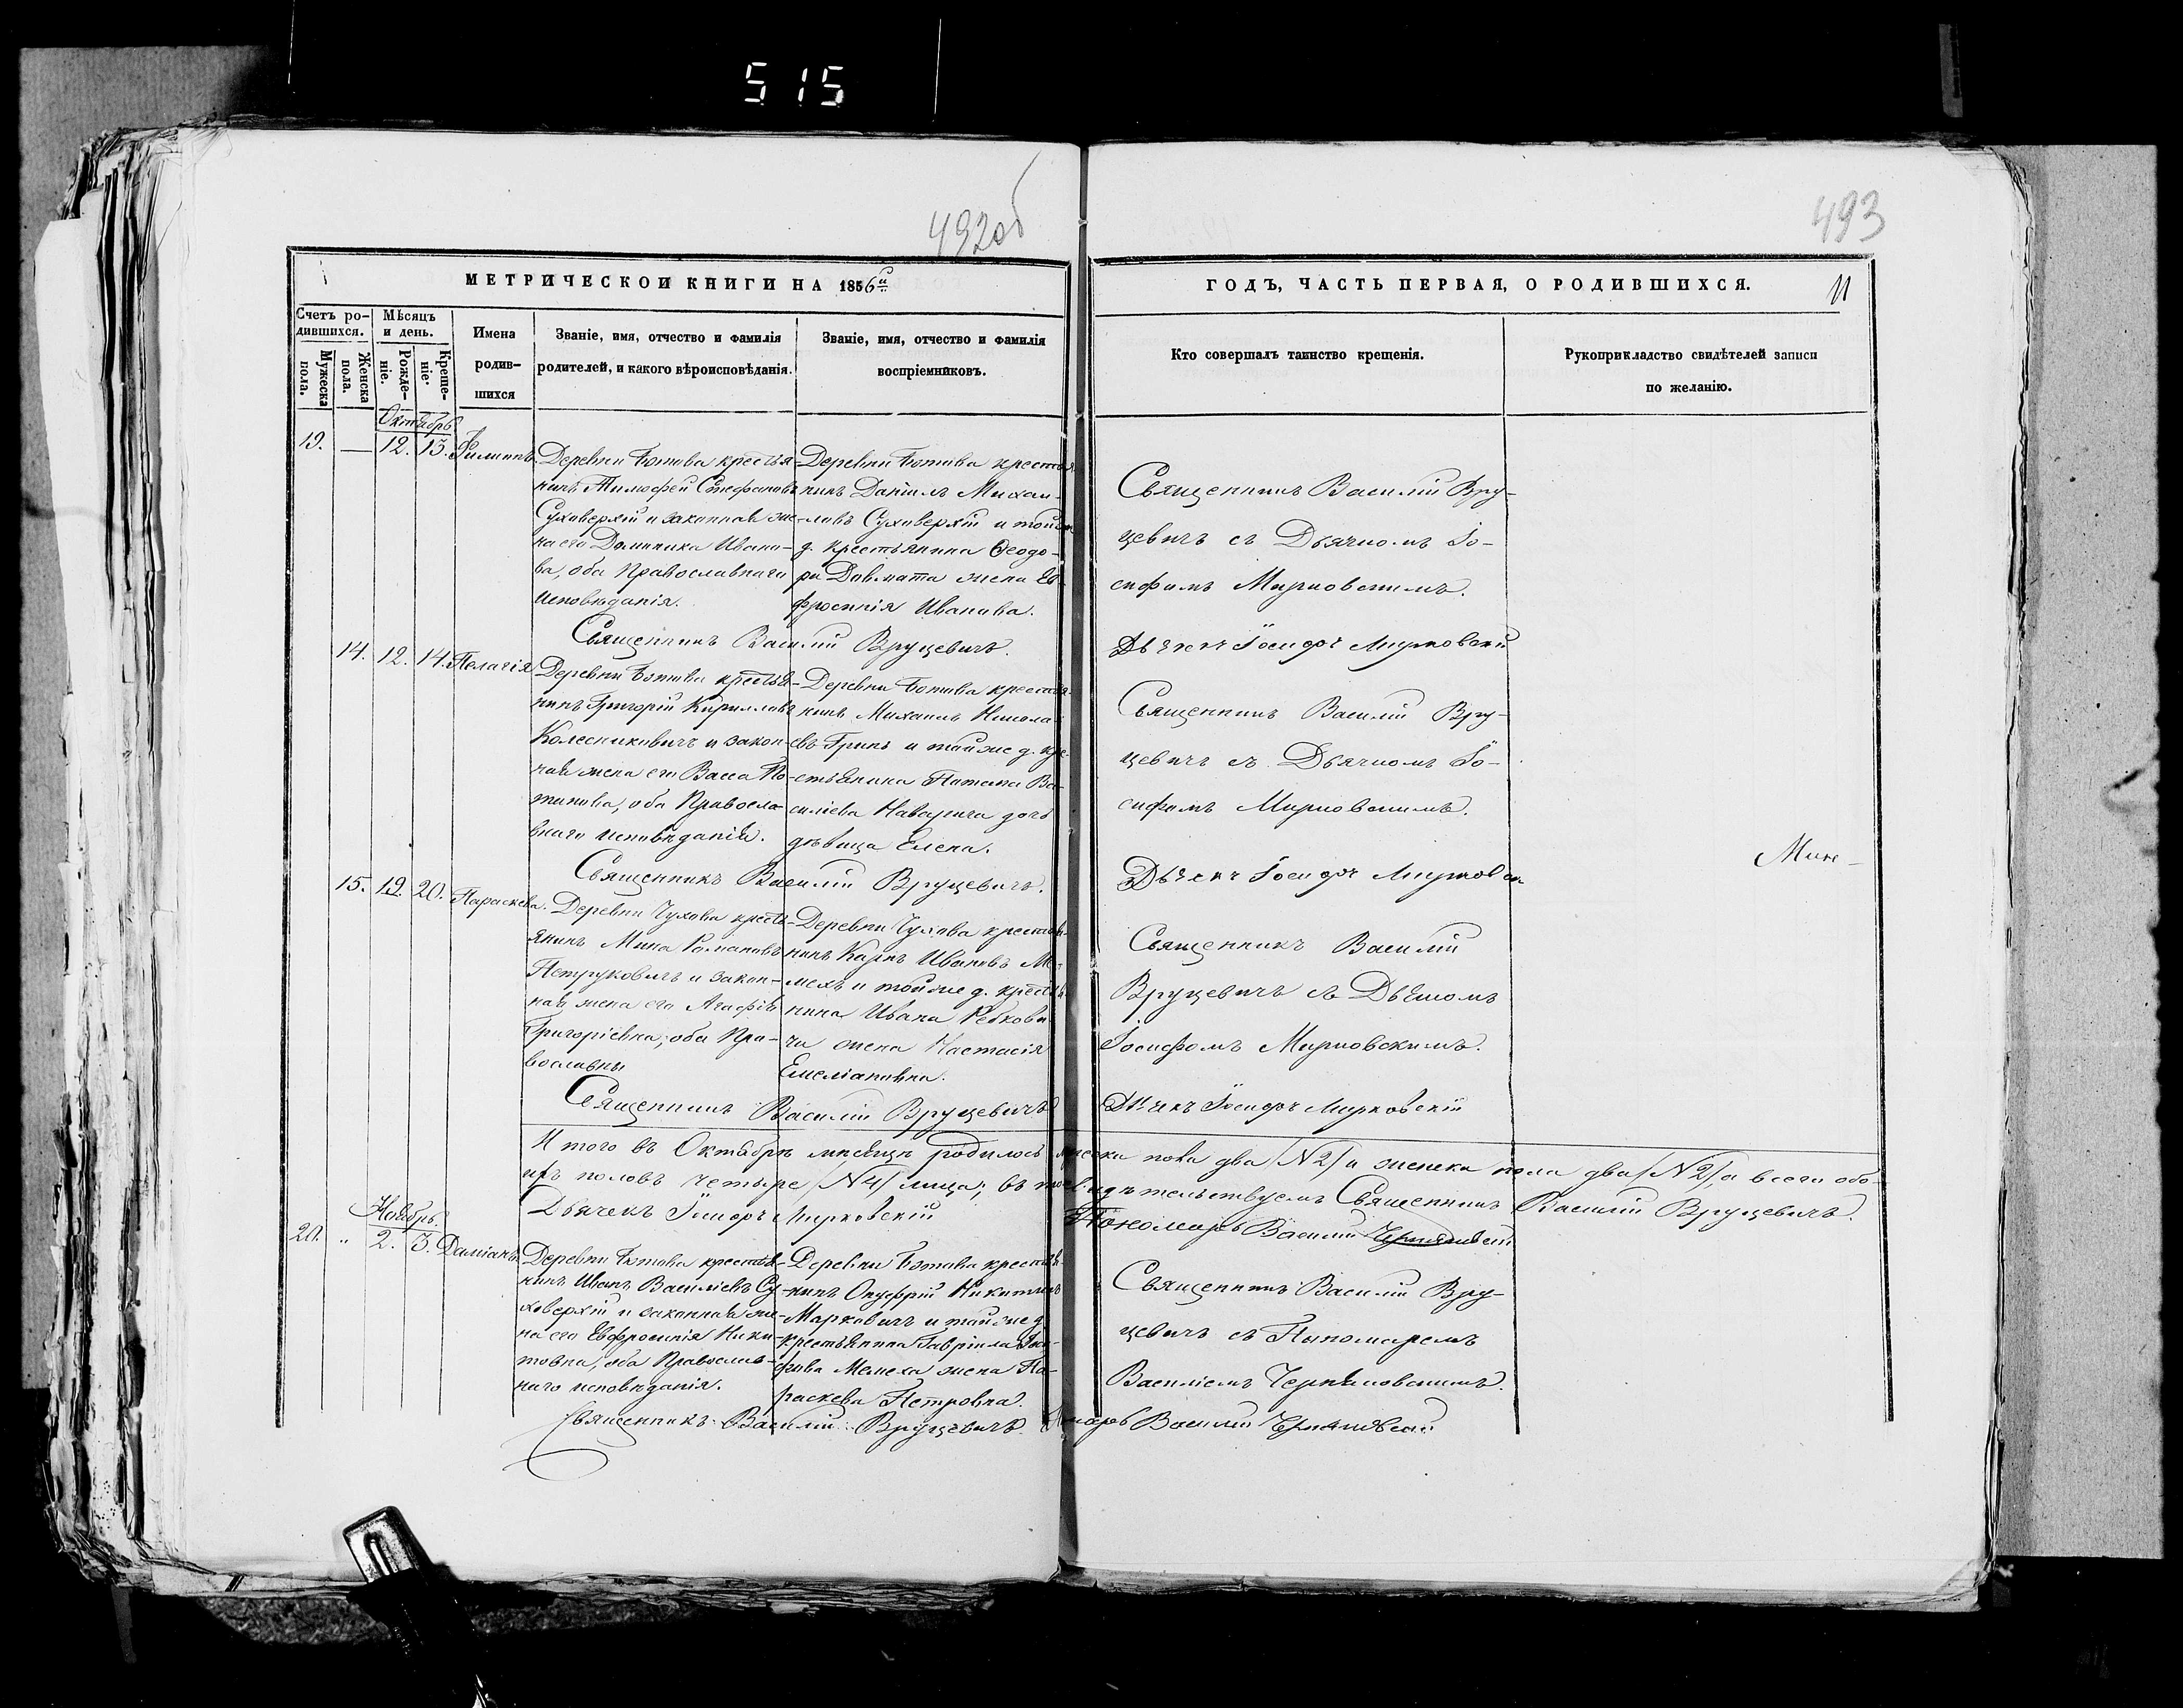 515
492об
493
МЕТРИЧЕСКОЙ КНИГИ НА 1856й
ГОДЪ, ЧАСТЬ ПЕРВАЯ, О РОДИВШИХСЯ.
11
Счетъ родившихся.
Мужеска пола.
Женска пола.
Мѣсяцъ и день.
Рожденіе.
Крещеніе.
Имена родившихся
Званіе, имя, отчество и фамилія
родителей, и какого вѣроисповѣданія.
Званіе, имя, отчество и фамилія
воспріемниковъ.
Кто совершалъ таинство крещенія.
Рукоприкладство свидѣтелей записи
по желанію.
Октябрь
19. — 12. 13. Филиппъ
Деревни Ботова крестья-
нинъ Тимофей Стефановъ
Суховерхій и законная же-
на его Доминика Ивано-
ва, оба Православнаго
Исповѣданія.
Деревни Ботова крестья-
нинъ Даніилъ Михаи-
ловъ Суховерхій и тойже
д. крестьянина Ѳеодо-
ра Довмата жена Ев-
фросинія Иванова.
Священникъ Василій Вру-
цевичъ съ Дьячкомъ Іо-
сифомъ Мирковскимъ.
Священникъ Василій Вруцевичъ.
Дьячекъ Іосифъ Мирковскій
14. 12. 14. Пелагія
Деревни Ботова крестья-
нинъ Григорій Кирилловъ
Колесниковичъ и закон-
ная жена его Васса По-
тапова, оба Правосла-
внаго исповѣданія.
Деревни Ботова крестья-
нинъ Михаилъ Никола-
евъ Гринь и тойже д. кре-
стьянина Потапа Ва-
силіева Наварича дочь
дѣвица Елена.
Священникъ Василій Вру-
цевичъ съ Дьячкомъ Іо-
сифомъ Мирковскимъ.
Священникъ Василій Вруцевичъ.
Дьячекъ Іосифъ Мирковскі
15. 19. 20. Параскева.
Деревни Чухова кресть-
янинъ Мина Романовъ
Петруковичъ и закон-
ная жена его Агафія
Григоріевна, оба Пра-
вославны
Деревни Чухова крестья-
нинъ Карпъ Ивановъ Ме-
мехъ и тойже д. крестья-
нина Ивана Ребкови-
ча жена Настасія
Емеліановна.
Священникъ Василій
Вруцевичъ съ Дьячкомъ
Іосифомъ Мирковскимъ.
Священникъ Василій Вруцевичъ
Дьячекъ Іосифъ Мирковскій
Итого въ Октябрѣ мѣсяцѣ родилось мужеска пола два /№2/ и женска пола два /№2/ а всего обо-
ихъ половъ четыре /№4/ лица; въ томъ свидѣтельствуемъ Священникъ Василій Вруцевичъ.
Дьячекъ Іосифъ Мирковскій
Пономарь Василій
Ноябрь.
20. " 2. 3. Даміанъ
Деревни Ботова крестья-
нинъ Иванъ Василіевъ Су-
ховерхій и законная же-
на его Евфросинія Ники-
товна, оба Православ-
наго исповѣданія.
Деревни Ботова крестья-
нинъ Онуфрій Никитинъ
Марковичъ и тойже д.
крестьянина Гавріила Іо-
сифова Мемеха жена Па-
раскева Петровна.
Священникъ Василій Вру-
цевичъ съ Пономаремъ
Василіемъ Черняковскимъ.
Священникъ Василій Вруцевичъ.
Василій Черняковскій